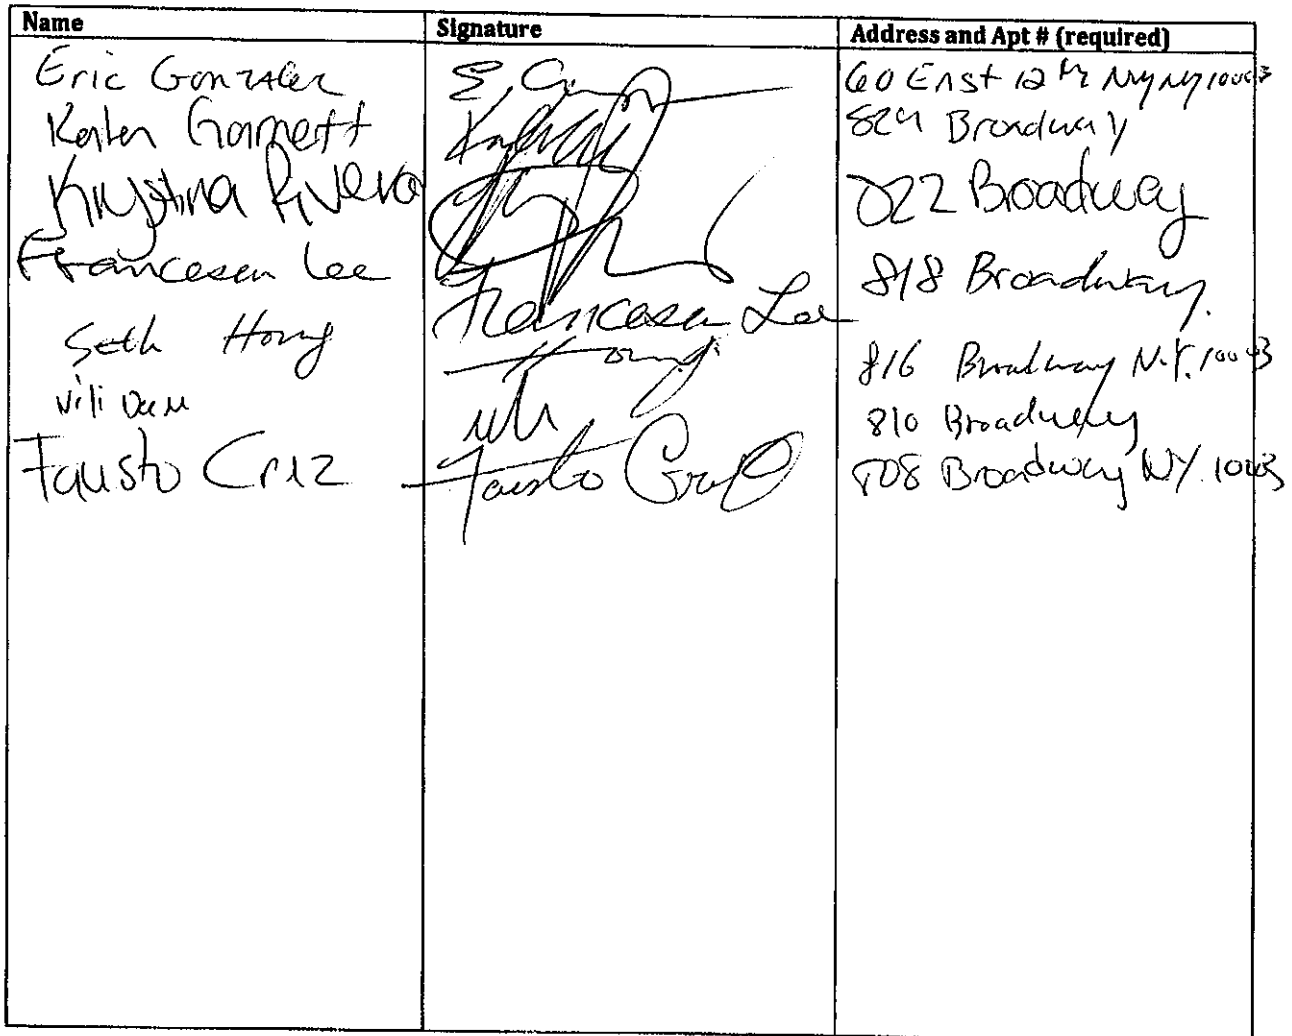 Name Signature Address and Apt # (required)
Eric Gonzalez E G 60 East 12th NY NY 10003
Garnett 824 Broadway
Krystina Rivera 822 Broadway
Francesca Lee Francesca Lee 818 Broadway.
Seth Hong Hong 816 Broadway N.Y. 10003
Vili 810 Broadway
Fausto Cruz Fausto Cruz 808 Broadway NY. 10003